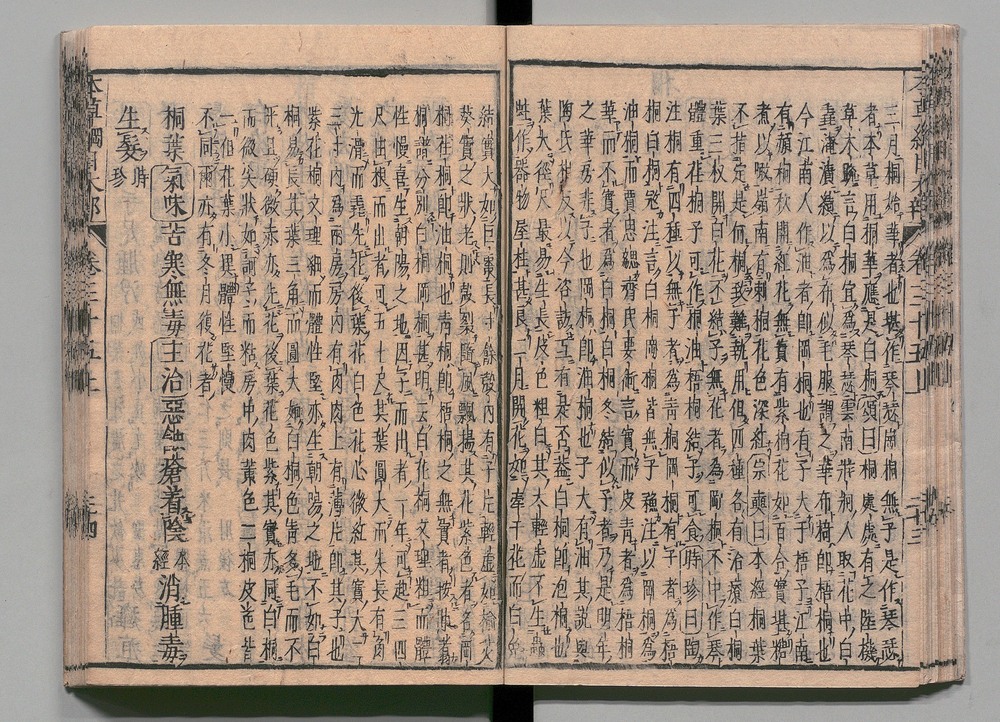 三月桐始華者也堪作琴瑟岡桐無子是作琴瑟
者本草用桐華應是白桐頌曰桐處處有之陸機
草木疏言白桐宜爲琴瑟雲南牂牁人取花中白
毳淹漬緝以爲布似毛服謂之華布椅卽梧桐也
今江南人作油者卽岡桐也有子大于梧子江南
有赬桐秋開紅花無實有紫桐花如百合實堪糖
煮以啖嶺南有刺桐花色深紅宗奭曰本經桐葉
不指定是何桐致難執用但四種各有治療白桐
葉三杈開白花不結子無花者爲岡桐不中作琴
體重荏桐子可作桐油梧桐結子可食時珍曰陶
注桐有四種以無子者爲青桐岡桐有子者爲梧
桐白桐寇注言白桐岡桐皆無子蘇注以岡桐爲
油桐而賈思勰齊民要術言實而皮青者爲梧桐
華而不實者爲白桐白桐冬結似子者乃是明年
之華房非子也岡桐卽油桐也子大有油其說與
陶氏相反以今咨訪互有是否蓋白桐卽泡桐也
葉大徑尺最易生長皮色粗白其木輕虛不生蟲
蛀作器物屋柱甚良二月開花如牽牛花而白色
本草綱目木部 卷三十五上
結實大如巨棗長寸餘殼內有子片輕虛如榆莢
葵實之狀老則殼裂隨風飄揚其花紫色者名岡
桐荏桐卽油桐也青桐卽梧桐之無實者按陳翥
桐譜分別白桐岡桐甚明云白花桐文理粗而體
性慢喜生朝陽之地因子而出者一年可起三四
尺由根而出者可五七尺其葉圓大而尖長有角
光滑而毳先花後葉花白色花心微紅其實大二
三寸內爲兩房房內有肉肉上有薄片卽其子也
紫花桐文理細而體性堅亦生朝陽之地不如白
桐易長其葉三角而圓大如白桐色青多毛而不
光且硬微赤亦先花後葉花色紫其實亦同白桐
而微尖狀如訶子而粘房中肉黃色二桐皮色皆
一但花葉小異體性堅慢
不同爾亦有冬月復花者
桐葉氣味苦寒無毒主治惡蝕瘡着陰本經消腫毒
生髮時珍
本草綱目木部 卷三十五上